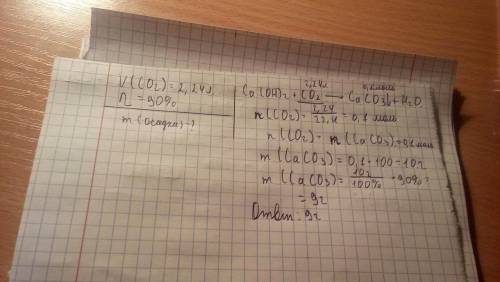 V(CO2) = 2,24л.
η = 90%
m(осадка)-?
2,24л 0,1моль
Ca(OH)2 + CO2 → CaCO3↓ + H2O
n(CO2) = 2,24/22,4 = 0,1 моль
n(CO2) = n(CaCO3) = 0,1 моль
m(CaCO3) = 0,1 · 100 = 10г
m(CaCO3) = 10г/100% · 90% =
= 9г
Ответ: 9г